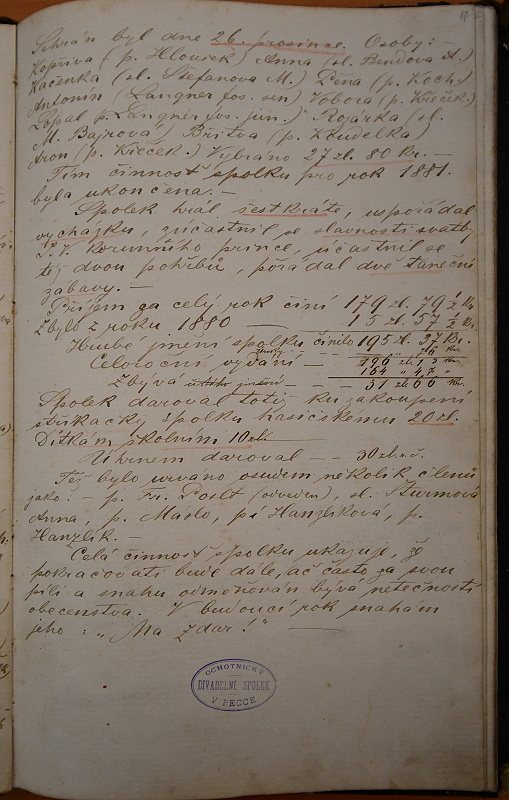 Sehrán byl dne 26. prosince. Osoby: –
Kopřiva (p. Hlousek) Anna (sl. Bendova A.)
Kačenka (sl. Štefanova M.) Pěna (p. Koch.)
Antonín (Langner Jos. sen) Vobora (p. Křeček.)
Lopal p. Langner Jos. jun.) Rojárka (sl.
M. Bajrová) Břitva (p. Koudelka)
Aron (p. Křeček.) Vybráno 27 zl. 80 Kr. –
Tím činnost spolku pro rok 1881.
byla ukončena. –
Spolek hrál šestkráte, uspořádal
vycházku, zúčastnil se slavnosti svatby
J. V. korunního prince, účastnil se
též dvou pohřbů, pořádal dvě taneční
zábavy. –
Příjem za celý rok činí 179 zl. 79 ½ Kr.
Zbylo z roku 1880 — 15 zl. 57 ½ Kr.
Hrubé jmění spolku činilo 195 zl. 37 Kr.
Celoroční vydání – –
Zbývá – – 31 zl. 66 Kr.
Spolek daroval totiž ku zakoupení
stříkačky spolku hasičskému 20 zl.
Dítkám školním 10 zl.
Úhrnem daroval – – 30 zl.
Též bylo urváno osudem několik členů
jako: – p. Fr. Poslt (odveden), sl. Šturmová
Anna, p. Máslo, pí Hanzlíková, p.
Hanzlík. –
Celá činnost spolku ukazuje, že
pokračovati bude dále, ač často za svou
píli a snahu odměňován bývá netečností
obecenstva. V budoucí rok snahám
jeho: „Na zdar!" —
OCHOTNICKÝ
DIVADELNÍ SPOLEK
V PECCE